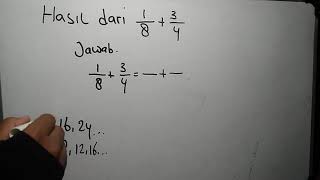 Hasil dari 1/8 + 3/4
Jawab.
1/8 + 3/4 = — + —
16, 24 ...
, 12, 16 ...